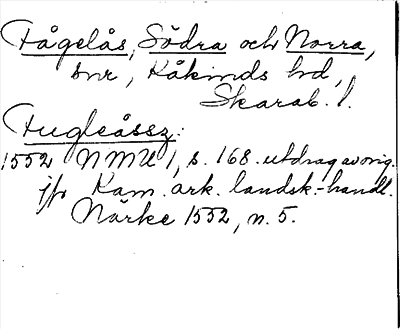 Fågelås, Södra och Norra,
snr, Kåkinds hd,
Skarab. l.
Fugleåssz:
1552 NMU 1, s. 168. utdrag av orig.
jfr Kam. ark. landsk.-handl.
Närke 1552, n. 5.